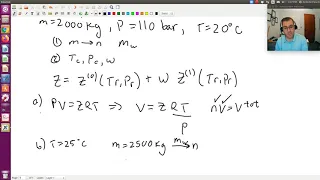 m=2000 kg, P=110 bar, T=20°C
① m → n  m_w
② T_c, P_c, w
Z = Z^(0)(Tr,Pr) + w Z^(1)(Tr,Pr)
a) PV=ZRT ⇒ V=ZRT/P  nV=V^tot
b) T=25°C  m=2500kg →(m_w) n